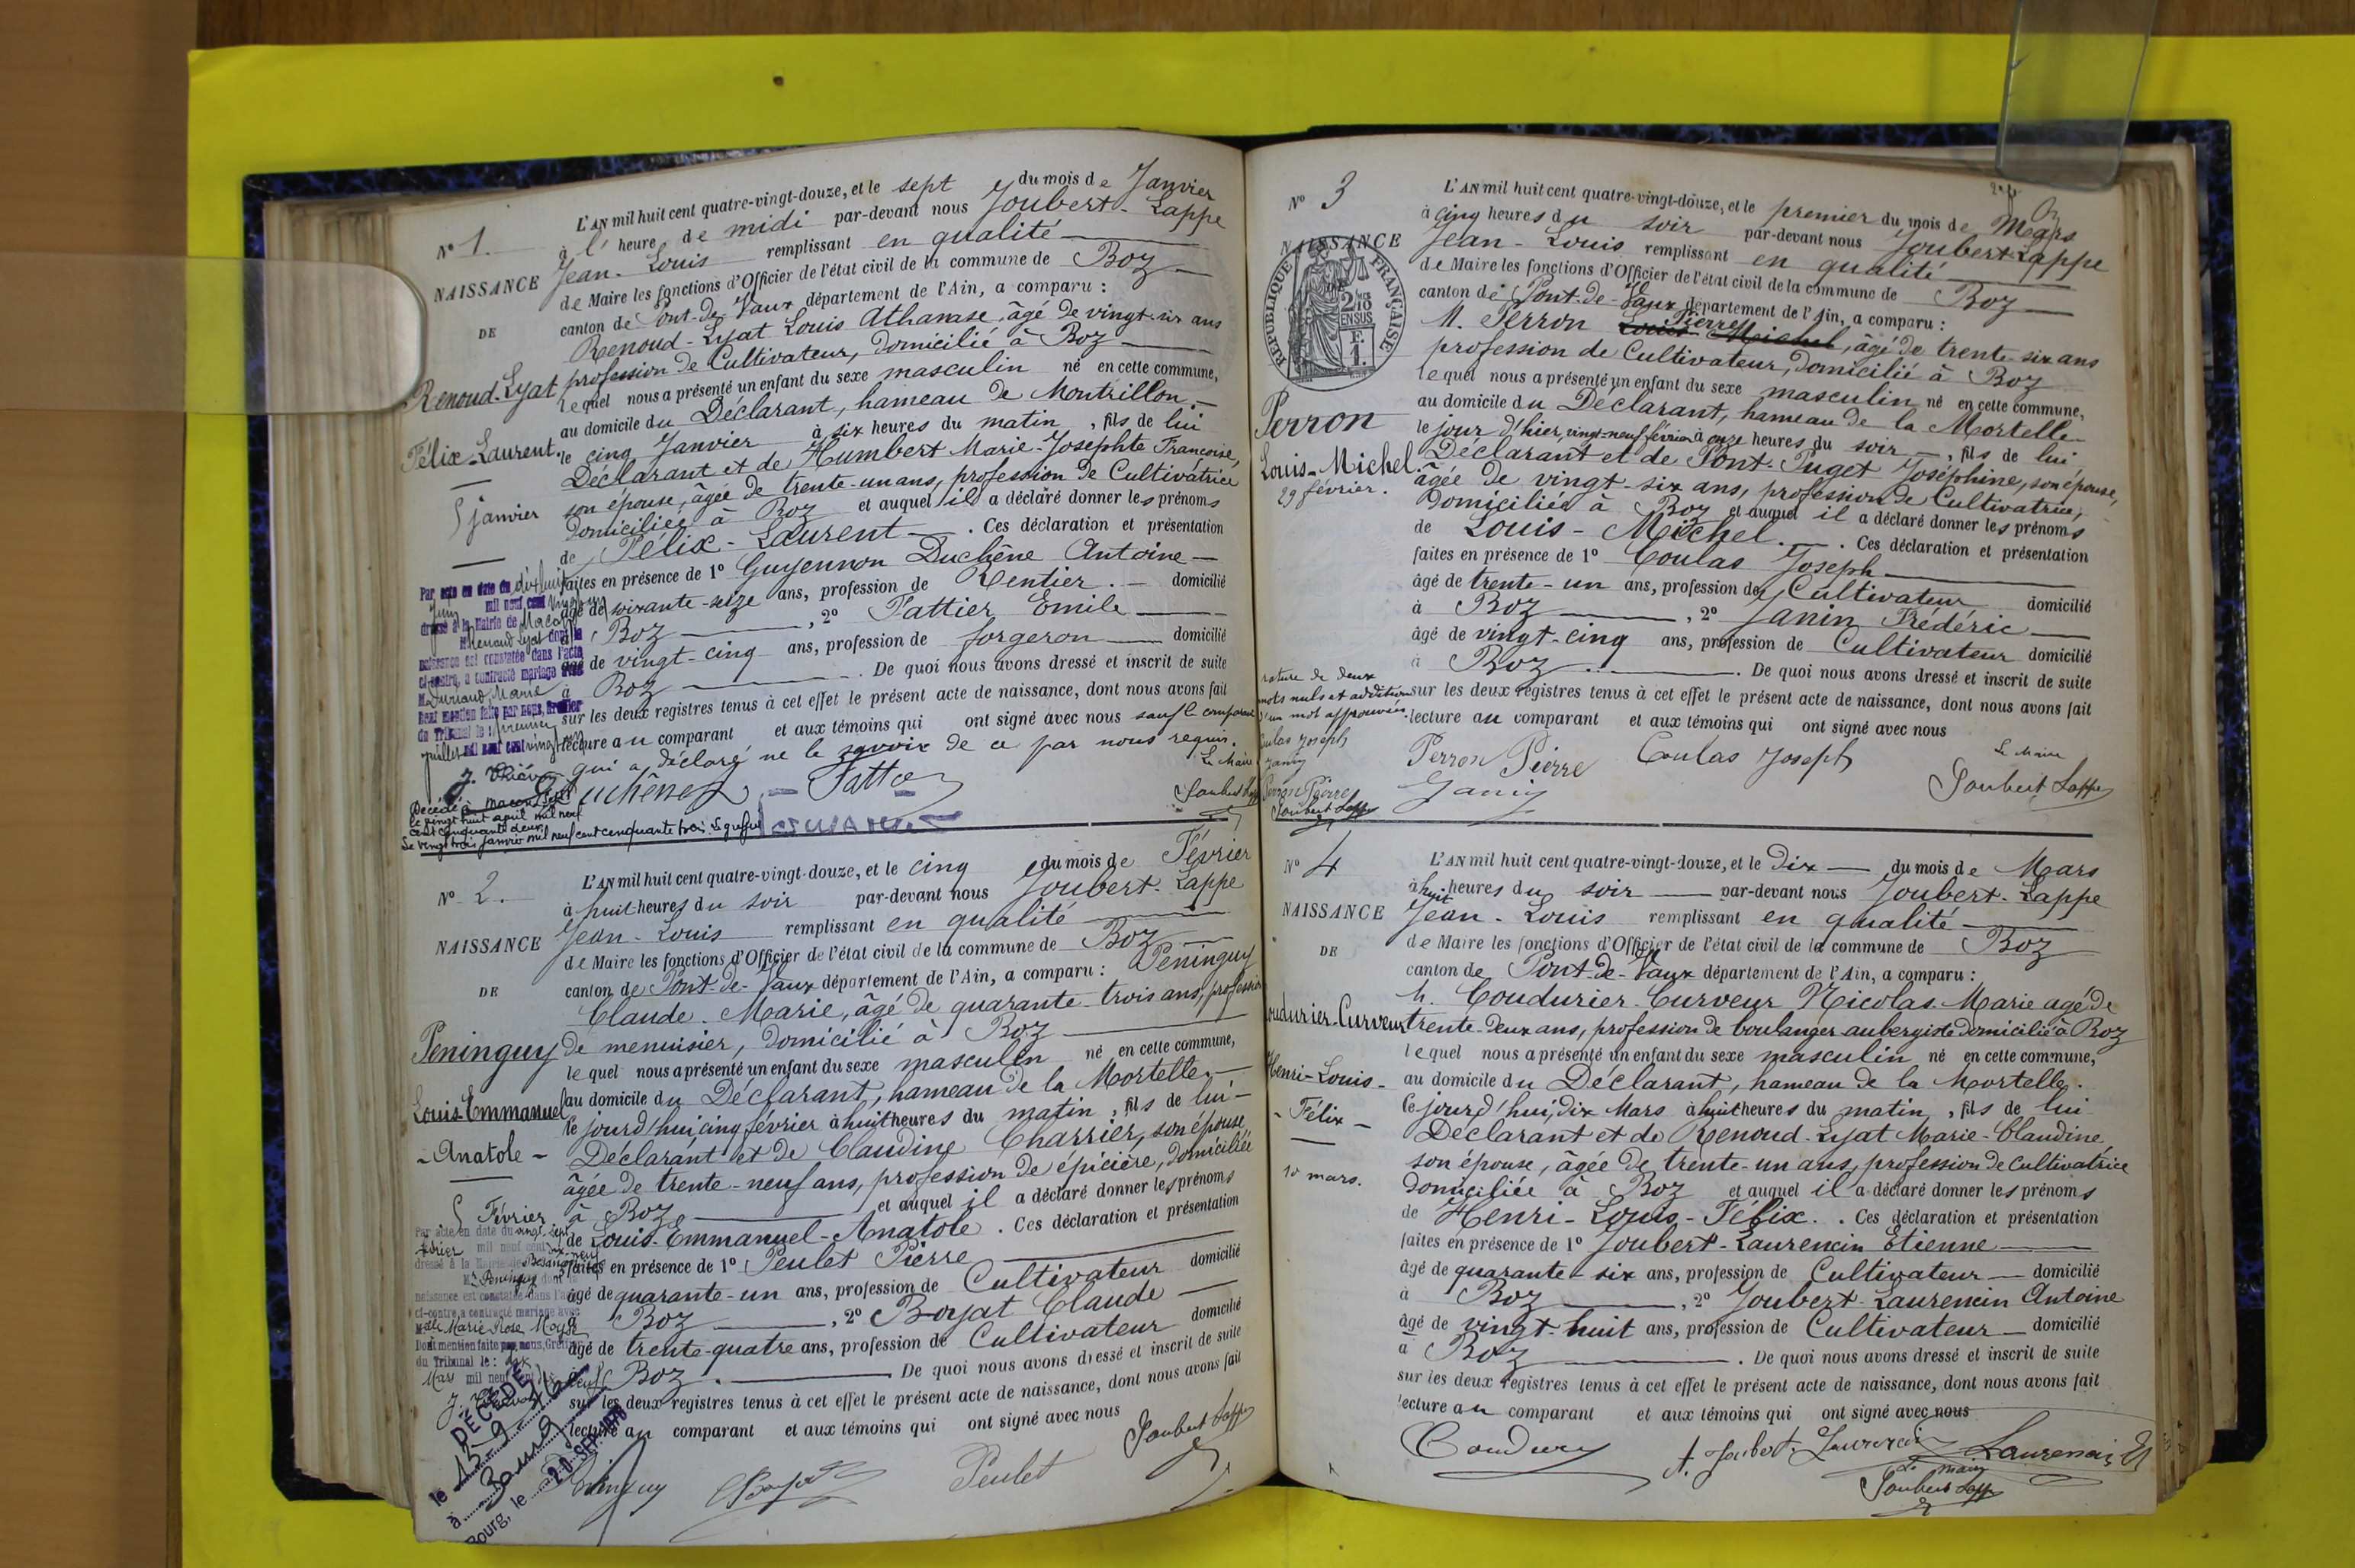 N° 1.
NAISSANCE
DE
Renoud-Lyat
Félix-Laurent.
5 janvier
L'AN mil huit cent quatre-vingt-douze, et le sept du mois de Janvier
à l' heure de midi par-devant nous Joubert-Lappe
Jean-Louis remplissant en qualité
de Maire les fonctions d'Officier de l'état civil de la commune de Boz
canton de Pont-de-Vaux département de l'Ain, a comparu :
Renoud-Lyat Louis Athanase, âgé de vingt-six ans
profession de Cultivateur, domicilié à Boz
lequel nous a présenté un enfant du sexe masculin né en cette commune,
au domicile du Déclarant, hameau de Montrillon.
le cinq Janvier à six heures du matin, fils de lui
Déclarant et de Humbert Marie-Josephte Françoise,
son épouse, âgée de trente-un ans, profession de Cultivatrice
domiciliée à Boz et auquel il a déclaré donner les prénoms
de Félix-Laurent. Ces déclaration et présentation
faites en présence de 1° Guyennon Duchêne Antoine
âgé de soixante-seize ans, profession de Rentier. domicilié
à Boz, 2° Fattier Emile
âgé de vingt-cinq ans, profession de forgeron domicilié
à Boz. De quoi nous avons dressé et inscrit de suite
sur les deux registres tenus à cet effet le présent acte de naissance, dont nous avons fait
lecture au comparant et aux témoins qui ont signé avec nous sauf le comparant
qui a déclaré ne le savoir de ce par nous requis.
Le Maire
Duchêne Joubert Lappe
Par acte en date du dix huit
Juin mil neuf cent vingt
dressé à la Mairie de Macon
M Renoud Lyat dont la
naissance est constatée dans l'acte
ci-contre, a contracté mariage avec
M Durand Marie
Dont mention faite par nous, Greffier
du Tribunal le premier
juillet mil neuf cent vingt
Décédé à Macon
le vingt huit april mil neuf
cent cinquante deux.
Le vingt trois janvier mil neuf cent cinquante trois. Le greffier
N° 2.
NAISSANCE
DE
Peninguy
Louis-Emmanuel
-Anatole-
5 Février
L'AN mil huit cent quatre-vingt-douze, et le cinq du mois de Février
à huit heures du soir par-devant nous Joubert-Lappe
Jean-Louis remplissant en qualité
de Maire les fonctions d'Officier de l'état civil de la commune de Boz
canton de Pont-de-Vaux département de l'Ain, a comparu : Peninguy
Claude-Marie, âgé de quarante-trois ans, profession
de menuisier, domicilié à Boz
lequel nous a présenté un enfant du sexe masculin né en cette commune,
au domicile du Déclarant, hameau de la Mortelle.
le jourd'hui cinq février à huit heures du matin, fils de lui
Déclarant et de Claudine Charrier, son épouse
âgée de trente-neuf ans, profession de épicière, domiciliée
à Boz et auquel il a déclaré donner les prénoms
de Louis-Emmanuel-Anatole. Ces déclaration et présentation
faites en présence de 1° Peulet Pierre
âgé de quarante-un ans, profession de Cultivateur domicilié
à Boz, 2° Boyat Claude
âgé de trente-quatre ans, profession de Cultivateur domicilié
à Boz. De quoi nous avons dressé et inscrit de suite
sur les deux registres tenus à cet effet le présent acte de naissance, dont nous avons fait
lecture au comparant et aux témoins qui ont signé avec nous
Peninguy Boyat Peulet Joubert Lappe
Par acte en date du vingt sept
février mil neuf cent dix-neuf
dressé à la Mairie de Besançon
M Peninguy dont la
naissance est constatée dans l'acte
ci-contre, a contracté mariage avec
Marie Rose
Dont mention faite par nous, Greffier
du Tribunal le : dix
Mars mil neuf cent dix neuf
DÉCÉDÉ
le 15-9
à
Bourg, le 20 SEP.
N° 3
NAISSANCE
RÉPUBLIQUE FRANÇAISE
2/10 EN SUS
F. 1.
Perron
Louis-Michel.
29 février.
L'AN mil huit cent quatre-vingt-douze, et le premier du mois de Mars
à cinq heures du soir par-devant nous Joubert-Lappe
Jean-Louis remplissant en qualité
de Maire les fonctions d'Officier de l'état civil de la commune de Boz
canton de Pont-de-Vaux département de l'Ain, a comparu :
M. Perron Louis Michel Pierre, âgé de trente-six ans
profession de Cultivateur, domicilié à Boz
lequel nous a présenté un enfant du sexe masculin né en cette commune,
au domicile du Déclarant, hameau de la Mortelle
le jour d'hier, vingt-neuf février à onze heures du soir, fils de lui
Déclarant et de Pont-Puget Joséphine, son épouse,
âgée de vingt-six ans, profession de Cultivatrice,
domiciliée à Boz et auquel il a déclaré donner les prénoms
de Louis-Michel. Ces déclaration et présentation
faites en présence de 1° Coulas Joseph
âgé de trente-un ans, profession de Cultivateur domicilié
à Boz, 2° Janin Frédéric
âgé de vingt-cinq ans, profession de Cultivateur domicilié
à Boz. De quoi nous avons dressé et inscrit de suite
sur les deux registres tenus à cet effet le présent acte de naissance, dont nous avons fait
lecture au comparant et aux témoins qui ont signé avec nous
Perron Pierre Coulas Joseph Le Maire
Janin Joubert Lappe
rature de deux
mots nuls et addition
d'un mot approuvées.
Coulas Joseph
Janin
Perron Pierre
Joubert Lappe
N° 4
NAISSANCE
DE
Coudurier-Curveur
Henri-Louis-
-Félix-
10 mars.
L'AN mil huit cent quatre-vingt-douze, et le dix du mois de Mars
à huit heures du soir par-devant nous Joubert-Lappe
Jean-Louis remplissant en qualité
de Maire les fonctions d'Officier de l'état civil de la commune de Boz
canton de Pont-de-Vaux département de l'Ain, a comparu :
M. Coudurier-Curveur Nicolas-Marie agé de
trente-deux ans, profession de boulanger-aubergiste domicilié à Boz
lequel nous a présenté un enfant du sexe masculin né en cette commune,
au domicile du Déclarant, hameau de la Mortelle.
le jourd'hui, dix Mars à huit heures du matin, fils de lui
Déclarant et de Renoud-Lyat Marie-Claudine,
son épouse, âgée de trente-un ans, profession de cultivatrice
domiciliée à Boz et auquel il a déclaré donner les prénoms
de Henri-Louis-Félix. Ces déclaration et présentation
faites en présence de 1° Joubert-Laurencin Etienne
âgé de quarante-six ans, profession de Cultivateur domicilié
à Boz, 2° Joubert-Laurencin Antoine
âgé de vingt-huit ans, profession de Cultivateur domicilié
à Boz. De quoi nous avons dressé et inscrit de suite
sur les deux registres tenus à cet effet le présent acte de naissance, dont nous avons fait
lecture au comparant et aux témoins qui ont signé avec nous
A. Joubert-Laurencin Laurencin
Le maire
Joubert Lappe